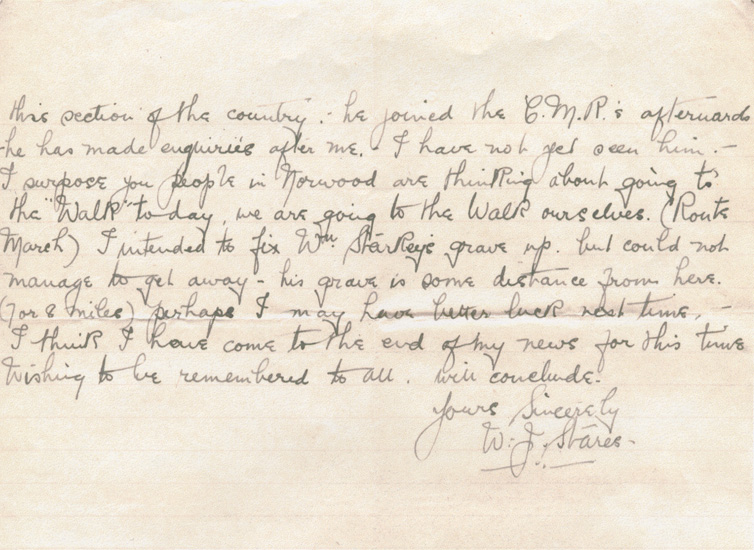 this section of the country :- he joined the C.M.R.'s afterwards
-he has made enquiries after me. - I have not yet seen him. -
I surpose you people in Norwood are thinking about going to
the "Walk" to-day, we are going to the Walk ourselves. (Route
March) I intended to fix Wm. Starkey's grave up. but could not
manage to get away - his grave is some distance from here.
(7 or 8 miles) perhaps I may have better luck next time, -
I think I have come to the end of my news for this time
Wishing to be remembered to all. will conclude.
Yours Sincerely
W. J. Stares-